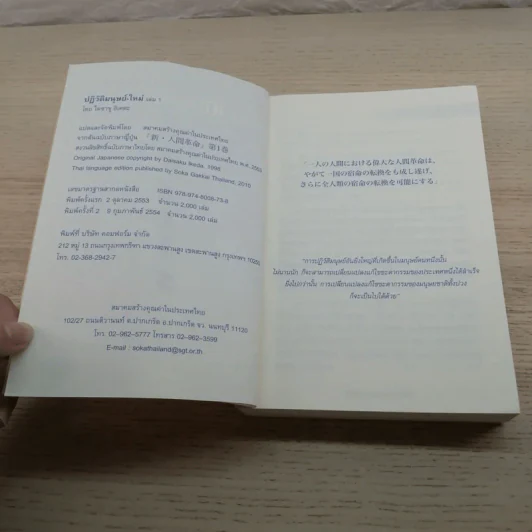 ปฏิวัติมนุษย์-ใหม่ เล่ม 1
โดย ไดซาขุ อิเคดะ
แปลและจัดพิมพ์โดย สมาคมสร้างคุณค่าในประเทศไทย
จากต้นฉบับภาษาญี่ปุ่น 「新・人間革命」第1巻
สงวนลิขสิทธิ์ฉบับภาษาไทยโดย สมาคมสร้างคุณค่าในประเทศไทย, พ.ศ. 2553
Original Japanese copyright by Daisaku Ikeda, 1998
Thai language edition published by Soka Gakkai Thailand, 2010
เลขมาตรฐานสากลหนังสือ ISBN 978-974-8006-75-8
พิมพ์ครั้งแรก 2 ตุลาคม 2553 จำนวน 2,000 เล่ม
พิมพ์ครั้งที่ 2 5 กุมภาพันธ์ 2554 จำนวน 2,000 เล่ม
พิมพ์ที่ บริษัท คอมฟอร์ม จำกัด
212 หมู่ 13 ถนนกรุงเทพกรีฑา แขวงสะพานสูง เขตสะพานสูง กรุงเทพฯ 10250
โทร. 02-368-2942-7
สมาคมสร้างคุณค่าในประเทศไทย
102/27 ถนนติวานนท์ ต.ปากเกร็ด อ.ปากเกร็ด จว. นนทบุรี 11120
โทร. 02-962-5777 โทรสาร 02-962-3599
E-mail : sokathailand@sgt.or.th
「一人の人間における偉大な人間革命は、
やがて一国の宿命の転換をも成し遂げ、
さらに全人類の宿命の転換を可能にする」
"การปฏิวัติมนุษย์อันยิ่งใหญ่ที่เกิดขึ้นในมนุษย์คนหนึ่งนั้น
ไม่นานนัก ก็จะสามารถเปลี่ยนแปลงแก้ไขชะตากรรมของประเทศหนึ่งได้สำเร็จ
ยิ่งไปกว่านั้น การเปลี่ยนแปลงแก้ไขชะตากรรมของมนุษยชาติทั้งปวง
ก็จะเป็นไปได้ด้วย"